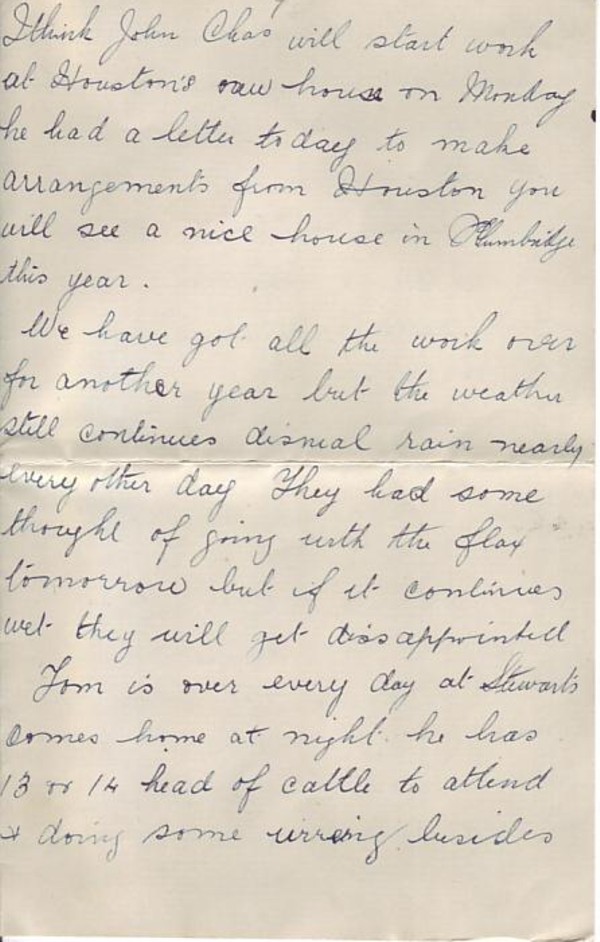 I think John Chas will start work
at Houston's new house on Monday
he had a letter today to make
arrangements from Houston you
will see a nice house in Plumbridge
this year.
We have got all the work over
for another year but the weather
still continues dismal rain nearly
every other day They had some
thought of going with the flax
tomorrow but if it continues
wet they will get dissappointed
Tom is over every day at Stewart's
comes home at night he has
13 or 14 head of cattle to attend
& doing some besides